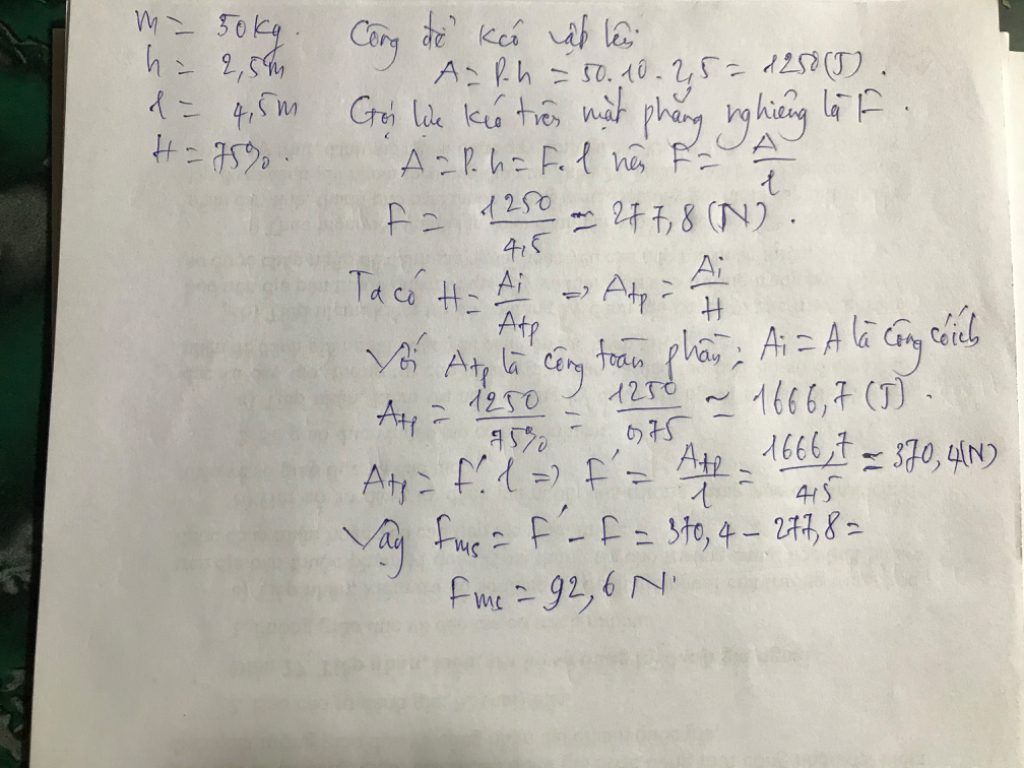 m = 50kg. Công để kéo vật lên
h = 2,5m A = P.h = 50.10.2,5 = 1250(J).
l = 4,5m Gọi lực kéo trên mặt phẳng nghiêng là F.
H = 75%. A = P.h = F.l nên F = A/l
F = 1250/4,5 = 277,8 (N).
Ta có H = Ai/Atp => Atp = Ai/H
Với Atp là công toàn phần; Ai = A là công có ích
Atp = 1250/75% = 1250/0,75 ≈ 1666,7 (J).
Atp = F'.l => F' = Atp/l = 1666,7/4,5 = 370,4(N)
Vậy Fms = F' - F = 370,4 - 277,8 =
Fms = 92,6 N